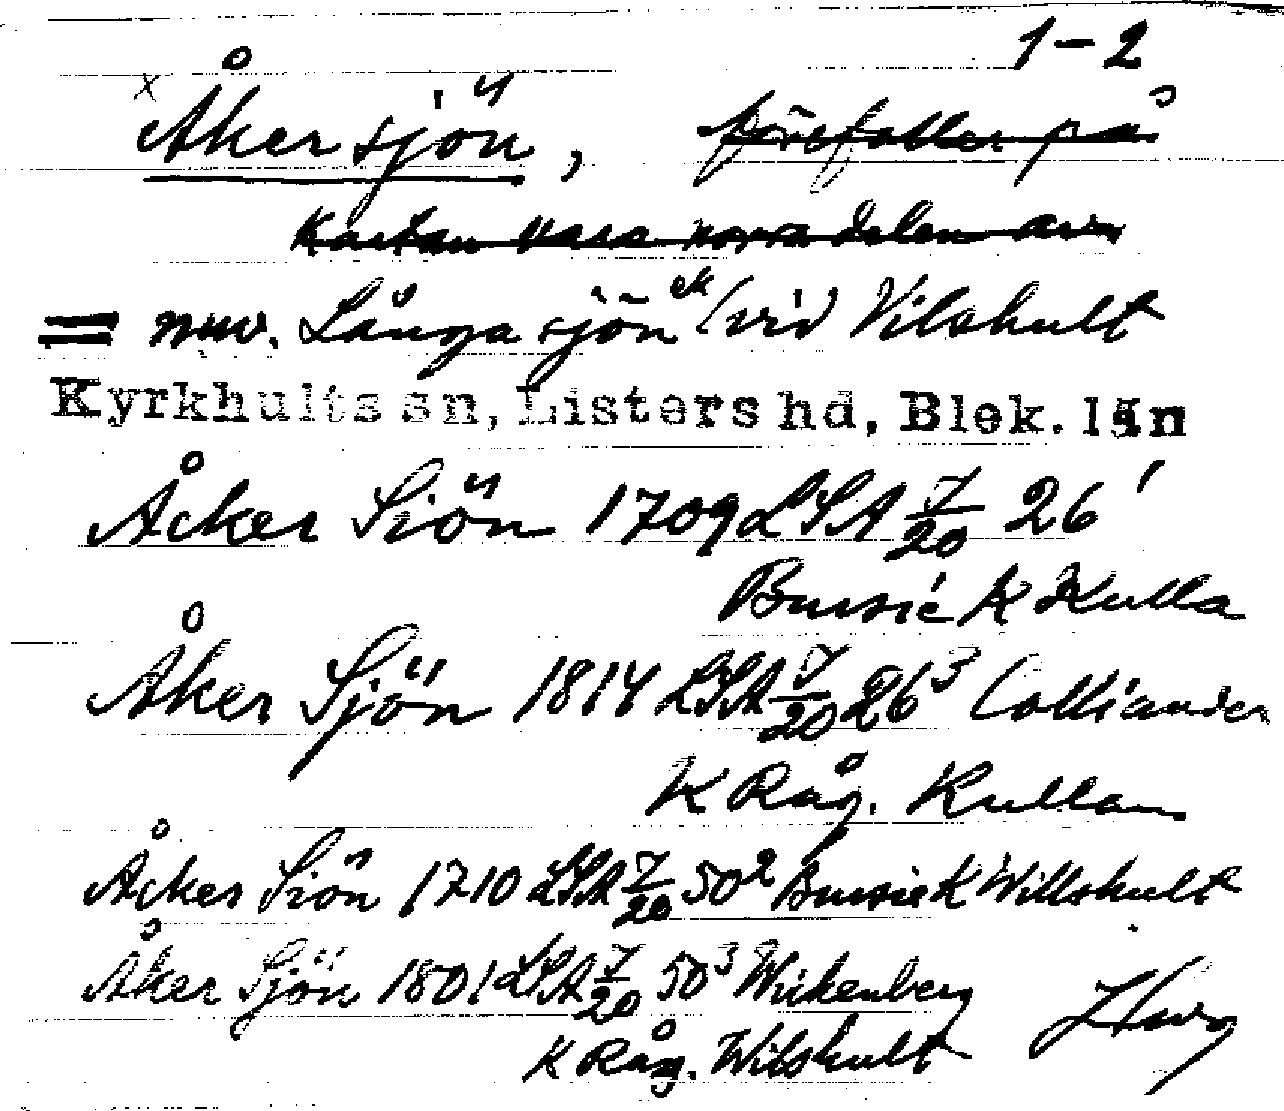 1-2
Åkersjön, förefaller på
kartan vara norra delen av
= nuv. Långasjön ek (vid Vilshult
Kyrkhults sn, Listers hd, Blek. län
Åcker Siön 1709 LSA 7/20 26 1
Bursie K Kulla
Åker Sjön 1814 LSA 7/20 26 3 Colliander
K Råg. Kulla
Åcker Siön 1710 LSA 7/20 50 2 Bursie K Willshult
Åker Sjön 1801 LSA 7/20 50 3 Wickenberg
K Råg. Wilshult